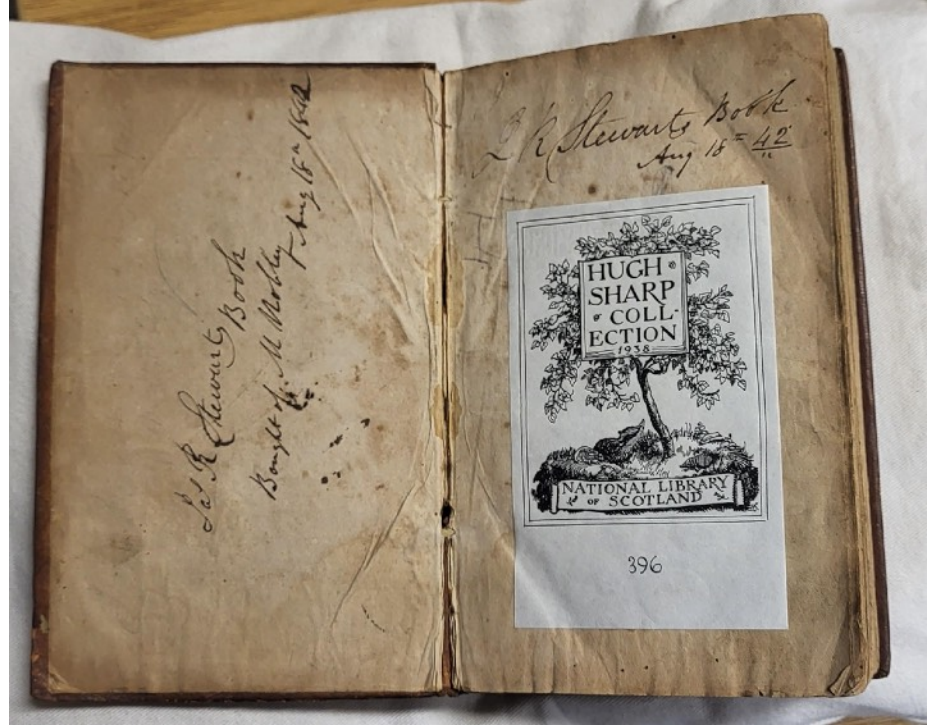 Jas R Stewarts
Book
Bought of M Mobley Aug 18th 1842
J R Stewarts Book
Aug 18 = 42
HUGH
SHARP
COLL-
ECTION
1938
NATIONAL LIBRARY
OF SCOTLAND
396